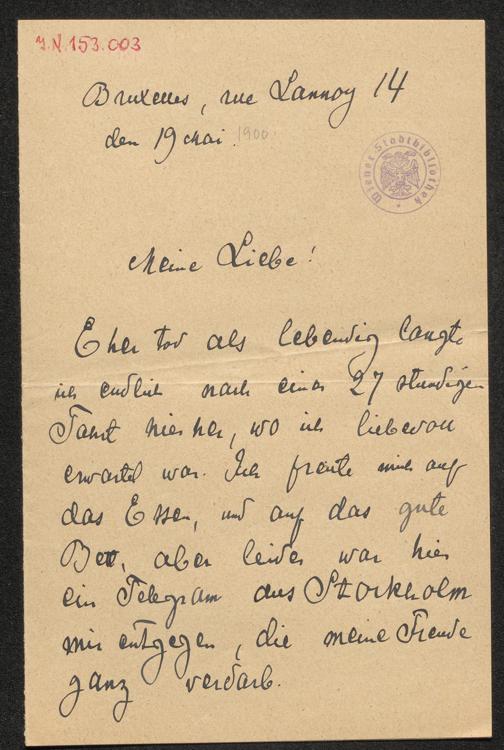 J.N. 153.003
Bruxelles, rue Lannoy 14
den 19 Mai. 1900.
Wiener Stadtbibliothek
Meine Liebe!
Eher tod als lebendig langte
ich endlich nach einer 27 stundigen
Fahrt hierher, wo ich liebevoll
erwartet war. Ich freute mich auf
das Essen, und auf das gute
Bett, aber leider war hier
ein Telegram aus Stockholm
mir entgegen, die meine Freude
ganz verdarb.